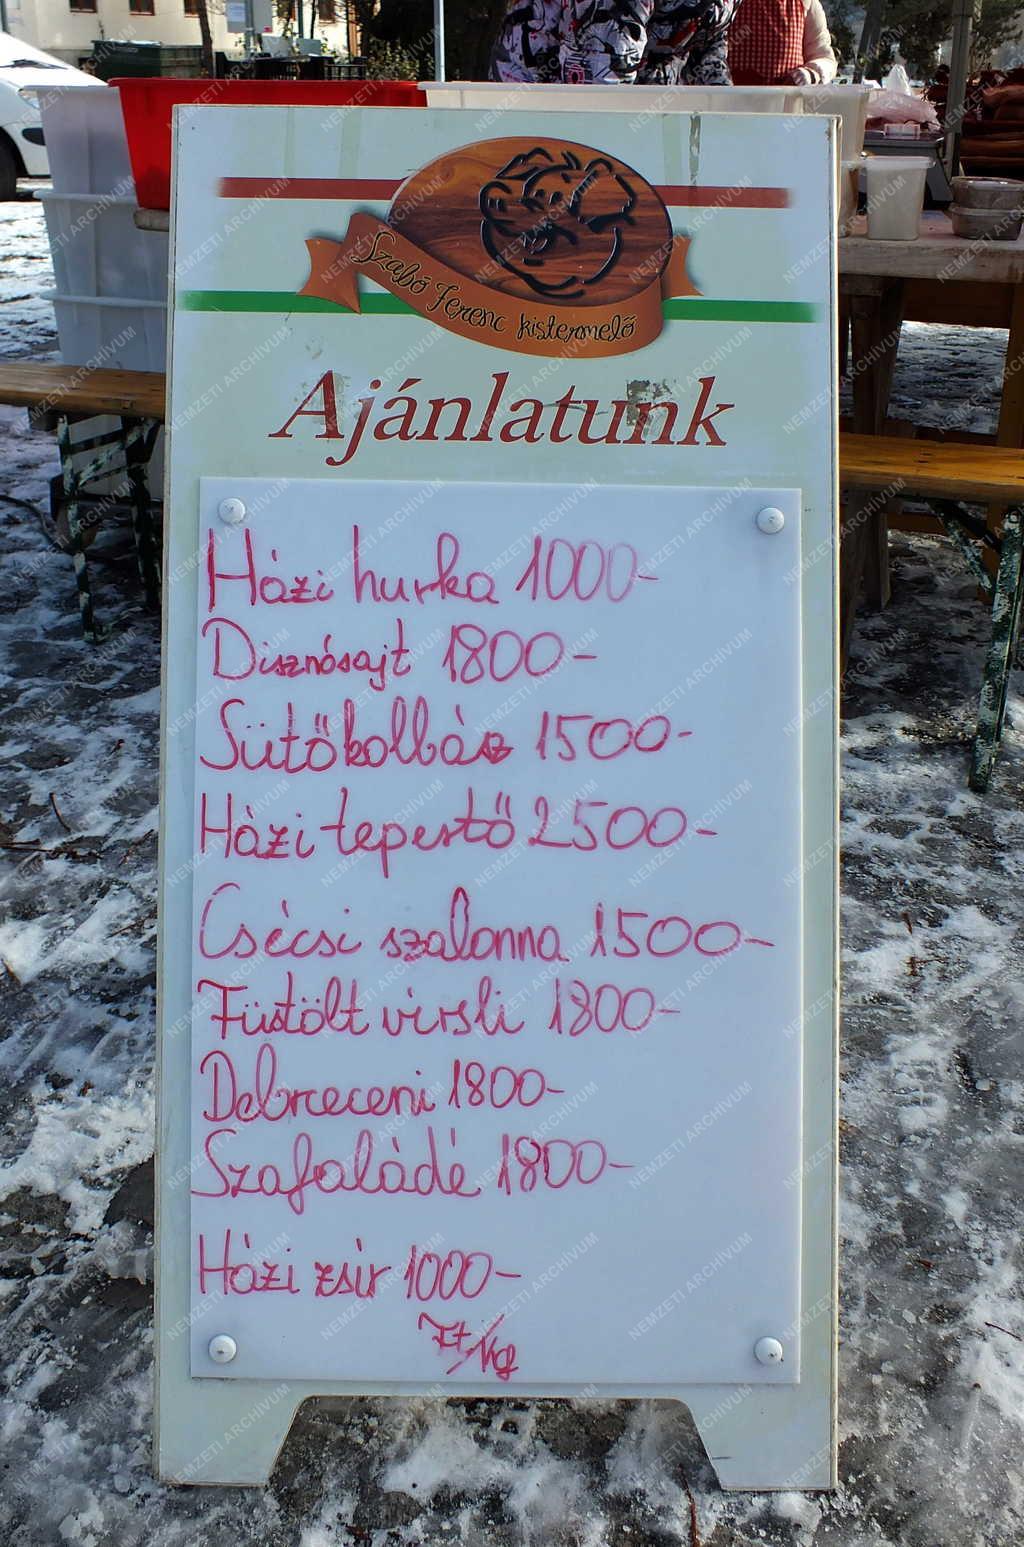 Szabó Ferenc kistermelő
Ajánlatunk
Házi hurka 1000-
Disznósajt 1800-
Sütőkolbász 1500-
Házi tepertő 2500-
Csécsi szalonna 1500-
Füstölt virsli 1800-
Debreceni 1800-
Szafaládé 1800-
Házi zsír 1000-
Ft/kg
NEMZETI ARCHÍVUM